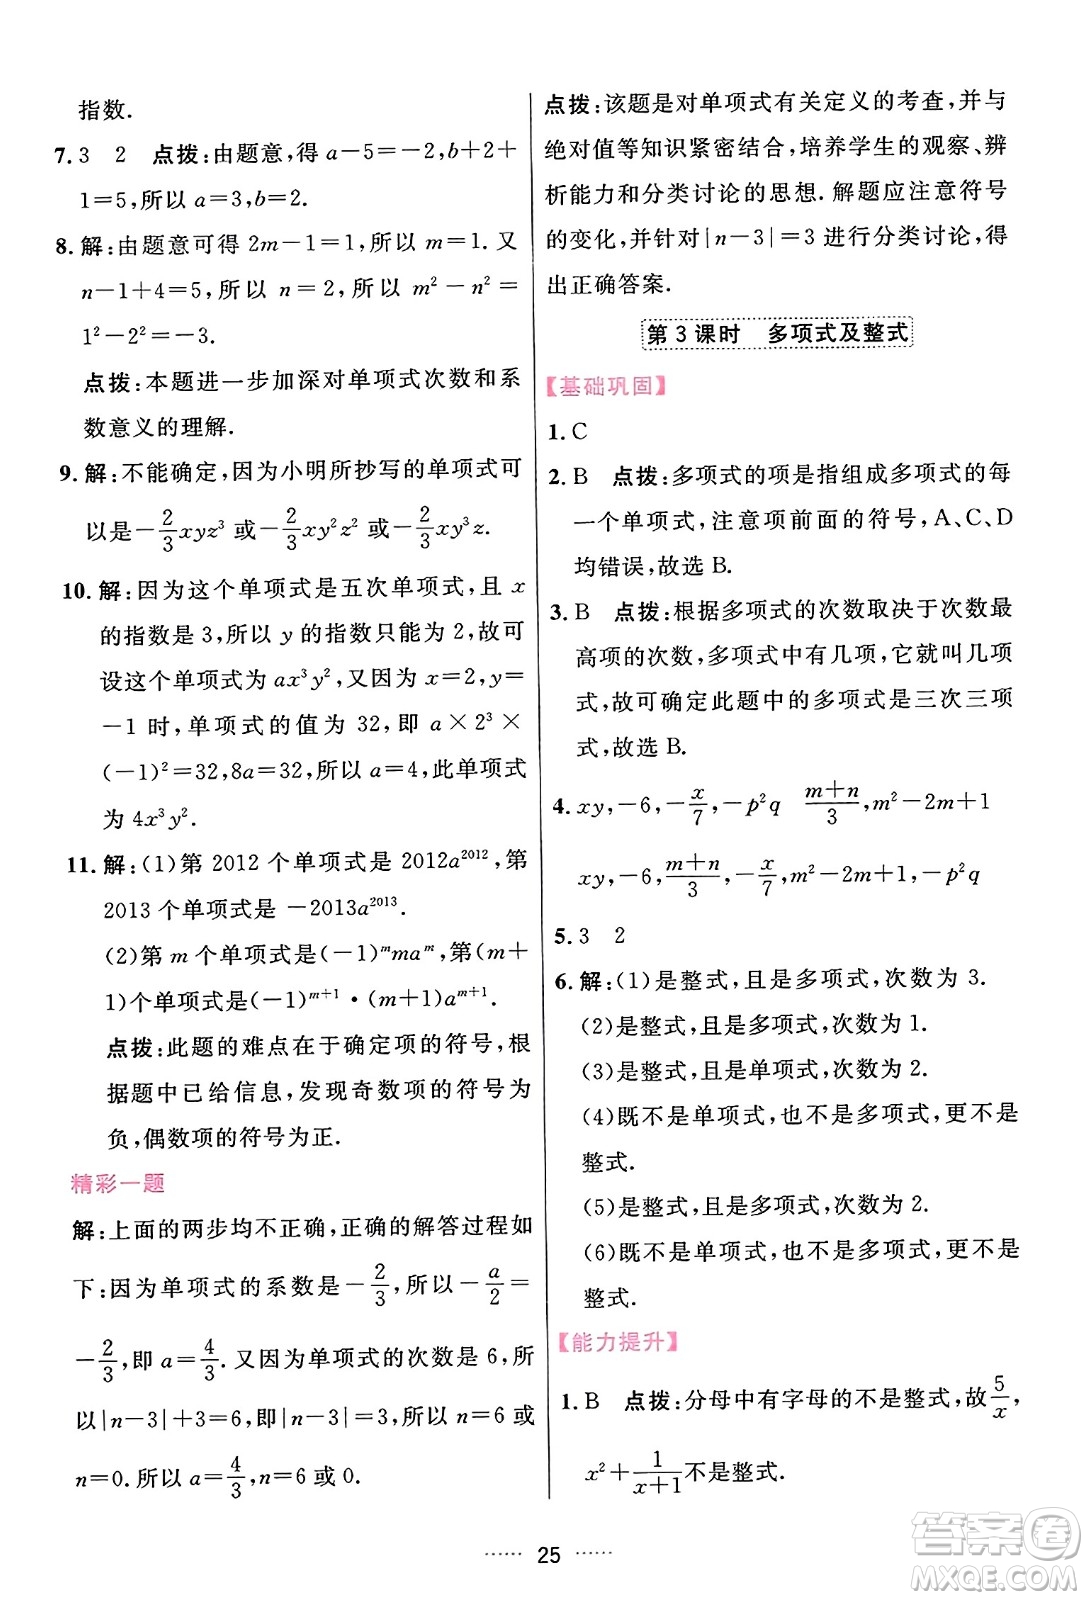 指数.
7. 3　2　点拨:由题意,得 a－5＝－2,b＋2＋
1＝5,所以 a＝3,b＝2.
8. 解:由题意可得 2m－1＝1,所以 m＝1. 又
n－1＋4＝5,所以 n＝2,所以 m²－n²＝
1²－2²＝－3.
点拨:本题进一步加深对单项式次数和系
数意义的理解.
9. 解:不能确定,因为小明所抄写的单项式可
以是－2/3xyz³ 或－2/3xy²z² 或－2/3xy³z.
10. 解:因为这个单项式是五次单项式,且 x
的指数是 3,所以 y 的指数只能为 2,故可
设这个单项式为 ax³y². 因为 x＝2,y＝
－1 时,单项式的值为 32,即 a×2³×
(－1)²＝32,8a＝32,所以 a＝4,此单项式
为 4x³y².
11. 解:(1)第 2012 个单项式是 2012a²⁰¹²,第
2013 个单项式是－2013a²⁰¹³.
(2)第 m 个单项式是(－1)ᵐmaᵐ,第(m＋
1)个单项式是(－1)ᵐ⁺¹·(m＋1)aᵐ⁺¹.
点拨:此题的难点在于确定项的符号,根
据题中已给信息,发现奇数项的符号为
负,偶数项的符号为正.
精彩一题
解:上面的两步均不正确,正确的解答过程如
下:因为单项式的系数是－2/3,所以－a/2＝
－2/3,即 a＝4/3. 又因为单项式的次数是 6,所
以|n－3|＋3＝6,即|n－3|＝3,所以 n＝6 或
n＝0. 所以 a＝4/3,n＝6 或 0.
点拨:该题是对单项式有关定义的考查,并与
绝对值等知识紧密结合,培养学生的观察、辨
析能力和分类讨论的思想. 解题应注意符号
的变化,并针对|n－3|＝3 进行分类讨论,得
出正确答案.
第 3 课时　多项式及整式
【基础巩固】
1. C
2. B　点拨:多项式的项是指组成多项式的每
一个单项式,注意项前面的符号,A、C、D
均错误,故选 B.
3. B　点拨:根据多项式的次数取决于次数最
高项的次数,多项式中有几项,它就叫几项
式,故可确定此题中的多项式是三次三项
式,故选 B.
4. xy,－6,－x/7,－p²q　(m＋n)/3,m²－2m＋1
xy,－6,(m＋n)/3,－x/7,m²－2m＋1,－p²q
5. 3　2
6. 解:(1)是整式,且是多项式,次数为 3.
(2)是整式,且是多项式,次数为 1.
(3)是整式,且是单项式,次数为 2.
(4)既不是单项式,也不是多项式,更不是
整式.
(5)是整式,且是多项式,次数为 2.
(6)既不是单项式,也不是多项式,更不是
整式.
【能力提升】
1. B　点拨:分母中有字母的不是整式,故5/x,
x²＋1/(x＋1)不是整式.
25
答案圈
MXQE.COM